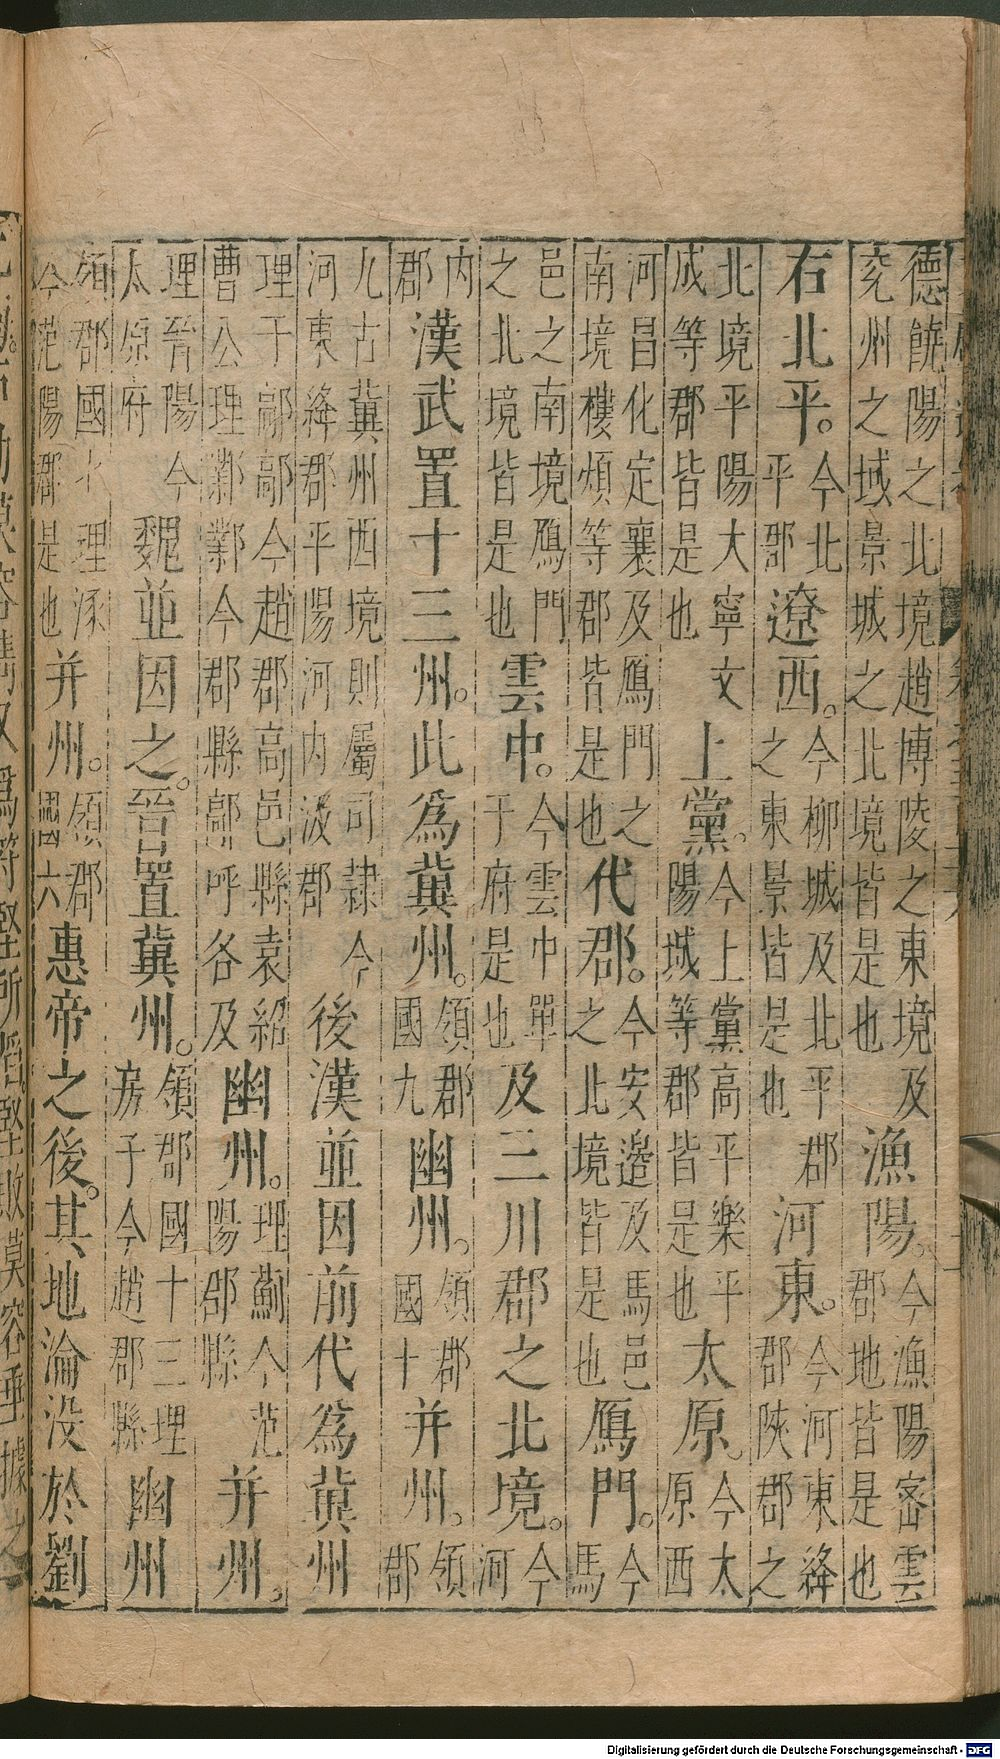 德饒陽之北境趙博陵之東境及兗州之域景城之北境皆是也漁陽。今漁陽密雲郡地皆是也
右北平。今北平郡遼西。今柳城及北平郡之東景皆是也河東。今河東絳郡陝郡之
北境平陽大寧文成等郡皆是也上黨。今上黨高平樂平陽城等郡皆是也太原。今太原西
河昌化定襄及鴈門之南境樓煩等郡皆是也代郡。今安邊及馬邑之北境皆是也鴈門。今馬
邑之南境鴈門之北境皆是也雲中。今雲中單于府是也及三川郡之北境。今河
内郡漢武置十三州。此爲冀州。領郡國九幽州。領郡國十并州。領郡
九古冀州西境則屬司隸今河東絳郡平陽河内汲郡後漢並因前代爲冀州
理于鄗鄗今趙郡高邑縣袁紹曹公理鄴鄴今郡縣鄗呼各及幽州。理薊今范陽郡縣并州。
理晉陽今太原府魏並因之。晉置冀州。領郡國十三理房子今趙郡縣幽州
領郡國理涿今范陽郡是也并州。領郡國六惠帝之後。其地淪没於劉
堅敗慕容垂據之
Digitalisierung gefördert durch die Deutsche Forschungsgemeinschaft - DFG